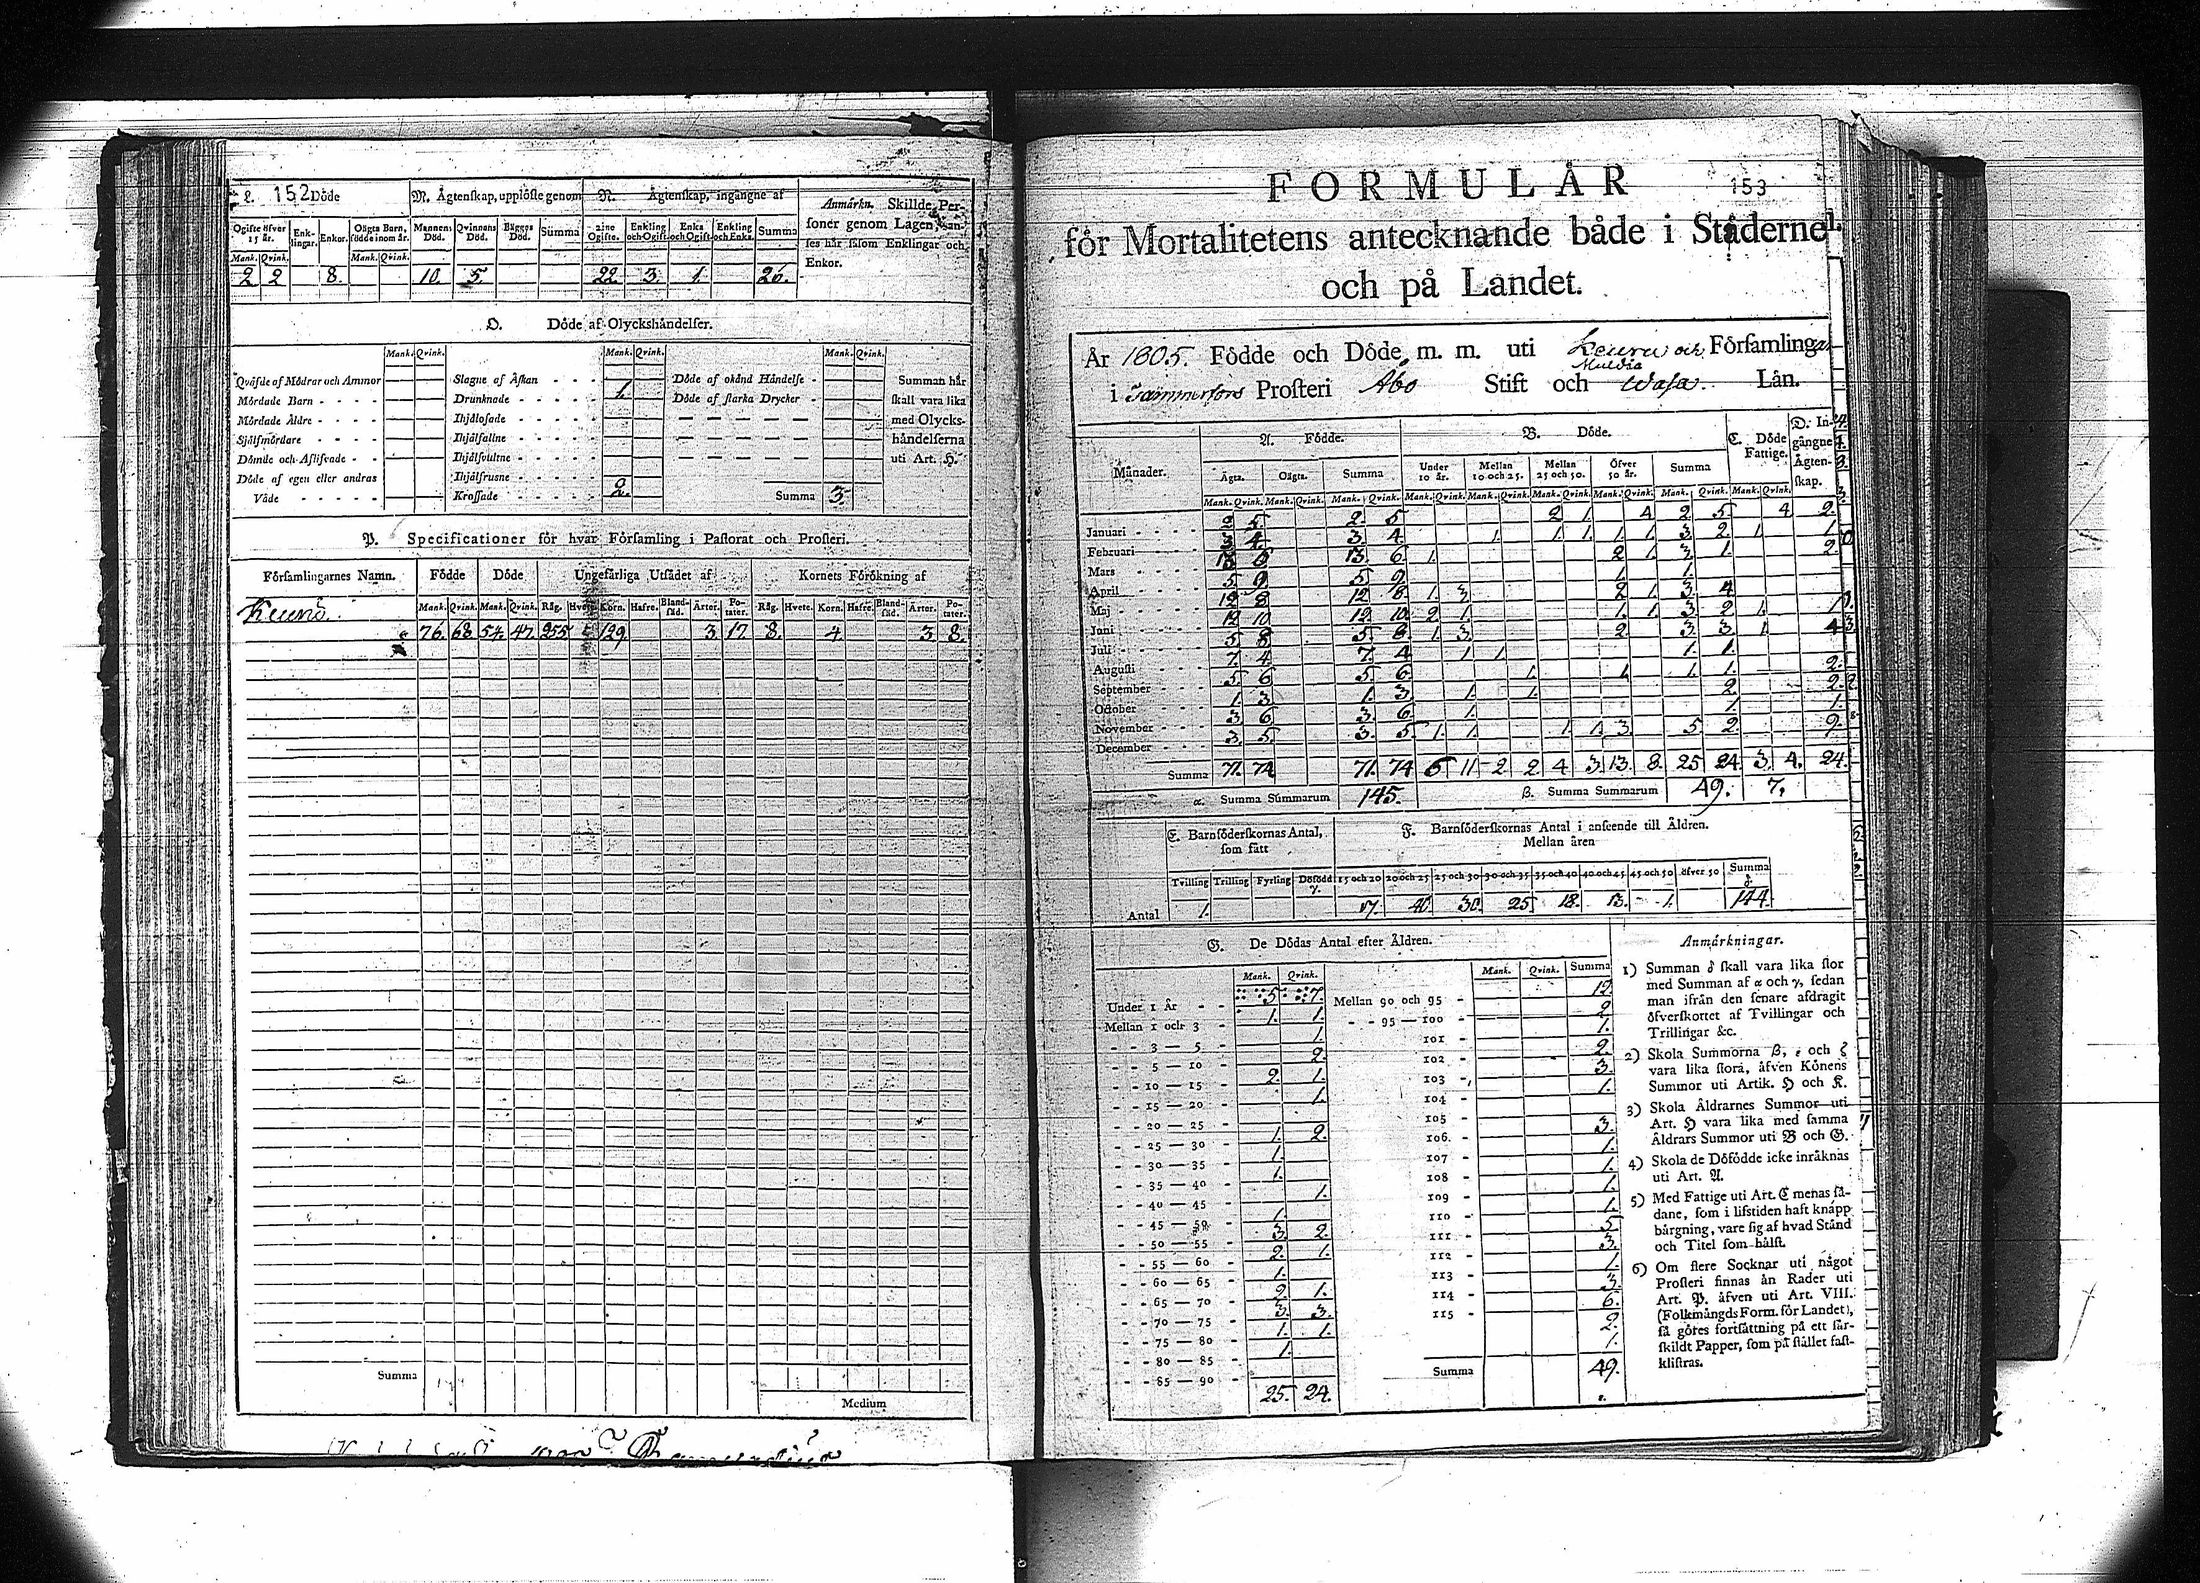 L. 152 Döde
M. Ågtenskap, upplöste genom
N. Ågtenskap, ingångne af
Anmårkn. Skillde Per-
soner genom Lagen, an-
ses hår såsom Enklingar och
Enkor.
Ogifte öfver 15 år. Enk- lingar. Enkor. Oägta Barn, födde inom år. Mannens Död. Qvinnans Död. Bägges Död. Summa Ogifte. Enkling och Ogift Enka och Ogift Enkling och Enka. Summa
Mank. Qvink. Mank. Qvink.
2 2 8. 10. 5. 22. 3. 1. 26.
O. Döde af Olyckshåndelser.
Mank. Qvink. Mank. Qvink. Mank. Qvink.
Qvåfde af Mödrar och Ammor Slagne af Åskan - - - - Döde af okånd Håndelse - Summan hår
Mördade Barn - - - - Drunknade - - - - - 1. Döde af starka Drycker - skall vara lika
Mördade Äldre - - - - Ihjälosade - - - - - med Olycks-
Sjålfmördare - - - - Ihjälfallne - - - - - håndelserna
Dömde och Aflifvade - - Ihjälsvultne - - - - uti Art. H.
Döde af egen eller andras Ihjälfrusne - - - - -
Våde - - - - - Krossade - - - - - 2. Summa 3
P. Specificationer för hvar Församling i Pastorat och Prosteri.
Församlingarnes Namn. Födde Döde Ungefärliga Utsådet af Kornets Förökning af
Mank. Qvink. Mank. Qvink. Råg. Hvete. Korn. Hafre. Bland- såd. Årter. Po- tater. Råg. Hvete. Korn. Hafre. Bland- såd. Årter. Po- tater.
76. 68. 54. 47. 255 129. 3. 17. 8. 4. 3. 8.
Summa
Medium
FORMULÅR 153
för Mortalitetens antecknande både i Ståderne
och på Landet.
År 1805. Födde och Döde m. m. uti Keuru och Församlinga
Muldia
i Tammerfors Prosteri Åbo Stift och Wasa. Lån.
Månader. A. Födde. B. Döde. C. Döde Fattige. D. In- gångne Ågten- skap.
Ågta. Oägta. Summa Under 10 år. Mellan 10 och 25. Mellan 25 och 50. Öfver 50 år. Summa
Mank. Qvink. Mank. Qvink. Mank. Qvink. Mank. Qvink. Mank. Qvink. Mank. Qvink. Mank. Qvink. Mank. Qvink. Mank. Qvink.
Januari - - - 2. 5. 2. 5 2 1. 4 2. 5. 4 2.
Februari - - - 3. 4. 3. 4. 1. 1. 1. 1. 1. 3. 2. 1. 1.
Mars - - - 13. 6 13. 6 1. 2 1. 3. 1. 2.
April - - -
Maj - - - 12 8 12 8 1. 3. 2 1. 3. 4
Juni - - - 12 10 12. 10 2 1. 1. 1. 3. 2 1. 1
Juli - - - 5 8 5 8 1. 3. 2. 3. 3. 1. 4
Augusti - - - 7. 4. 7. 4 1. 1. 1. 1.
September - - - 5. 6 5. 6. 1. 1. 1. 1. 2.
October - - - 1. 3. 1. 3. 1. 1. 2. 2.
November - - - 3. 6. 3. 6. 1. 1. 1.
December - - - 3. 5. 3. 5 1. 1. 1. 1. 3. 5 2.
Summa 71. 74 71. 74 6 11. 2 2 4 3. 13. 8. 25 24. 3. 4. 24.
α. Summa Summarum 145. β. Summa Summarum 49. 7.
E. Barnföderskornas Antal, som fått
F. Barnföderskornas Antal i anseende till Åldren.
Mellan åren
Tvilling Trilling Fyrling Dödfödd γ. 15 och 20 20 och 25 25 och 30 30 och 35 35 och 40 40 och 45 45 och 50 öfver 50 Summa δ
Antal 1. 17. 40. 30. 25 18. 13. 1. 144.
G. De Dödas Antal efter Åldren.
Mank. Qvink. Mank. Qvink. Summa
Under 1 År - - 5 7. Mellan 90 och 95 - 12.
Mellan 1 och 3 - 1. 1. - - 95 — 100 - 2
- - 3 — 5 - 1. 101 - 1.
- - 5 — 10 - 2 102 - 2.
- - 10 — 15 - 2. 1. 103 - 3.
- - 15 — 20 - 1. 104 - 1.
- - 20 — 25 - 105 -
- - 25 — 30 - 1. 2. 106. - 3.
- - 30 — 35 - 1. 107 - 1.
- - 35 — 40 - 1. 108 - 1.
- - 40 — 45 - 1. 109 - 1.
- - 45 — 50 - 1. 110 - 1.
- - 50 — 55 - 3. 2. 111 - 5
- - 55 — 60 - 2. 1. 112 - 3.
- - 60 — 65 - 1. 113 - 1.
- - 65 — 70 - 2. 1. 114 - 3
- - 70 — 75 - 3. 3. 115 - 6.
- - 75 — 80 - 1. 1. 2.
- - 80 — 85 - 1. 1.
- - 85 — 90 -
25. 24. Summa 49.
Anmårkningar.
1) Summan δ skall vara lika stor
med Summan af α och γ, sedan
man ifrån den senare afdragit
öfverskottet af Tvillingar och
Trillingar &c.
2) Skola Summorna β, ε och ζ
vara lika stora, åfven Könens
Summor uti Artik. H och K.
3) Skola Åldrarnes Summor uti
Art. H vara lika med samma
Åldrars Summor uti B och G.
4) Skola de Döfödde icke inråknas
uti Art. A.
5) Med Fattige uti Art. C menas så-
dane, som i lifstiden haft knapp
bårgning, vare sig af hvad Stånd
och Titel som hålst.
6) Om flere Socknar uti något
Prosteri finnas ån Rader uti
Art. P. åfven uti Art. VIII.
(Folkmångds Form. för Landet),
så göres fortsåttning på ett sår-
skildt Papper, som på stållet fast-
klistras.